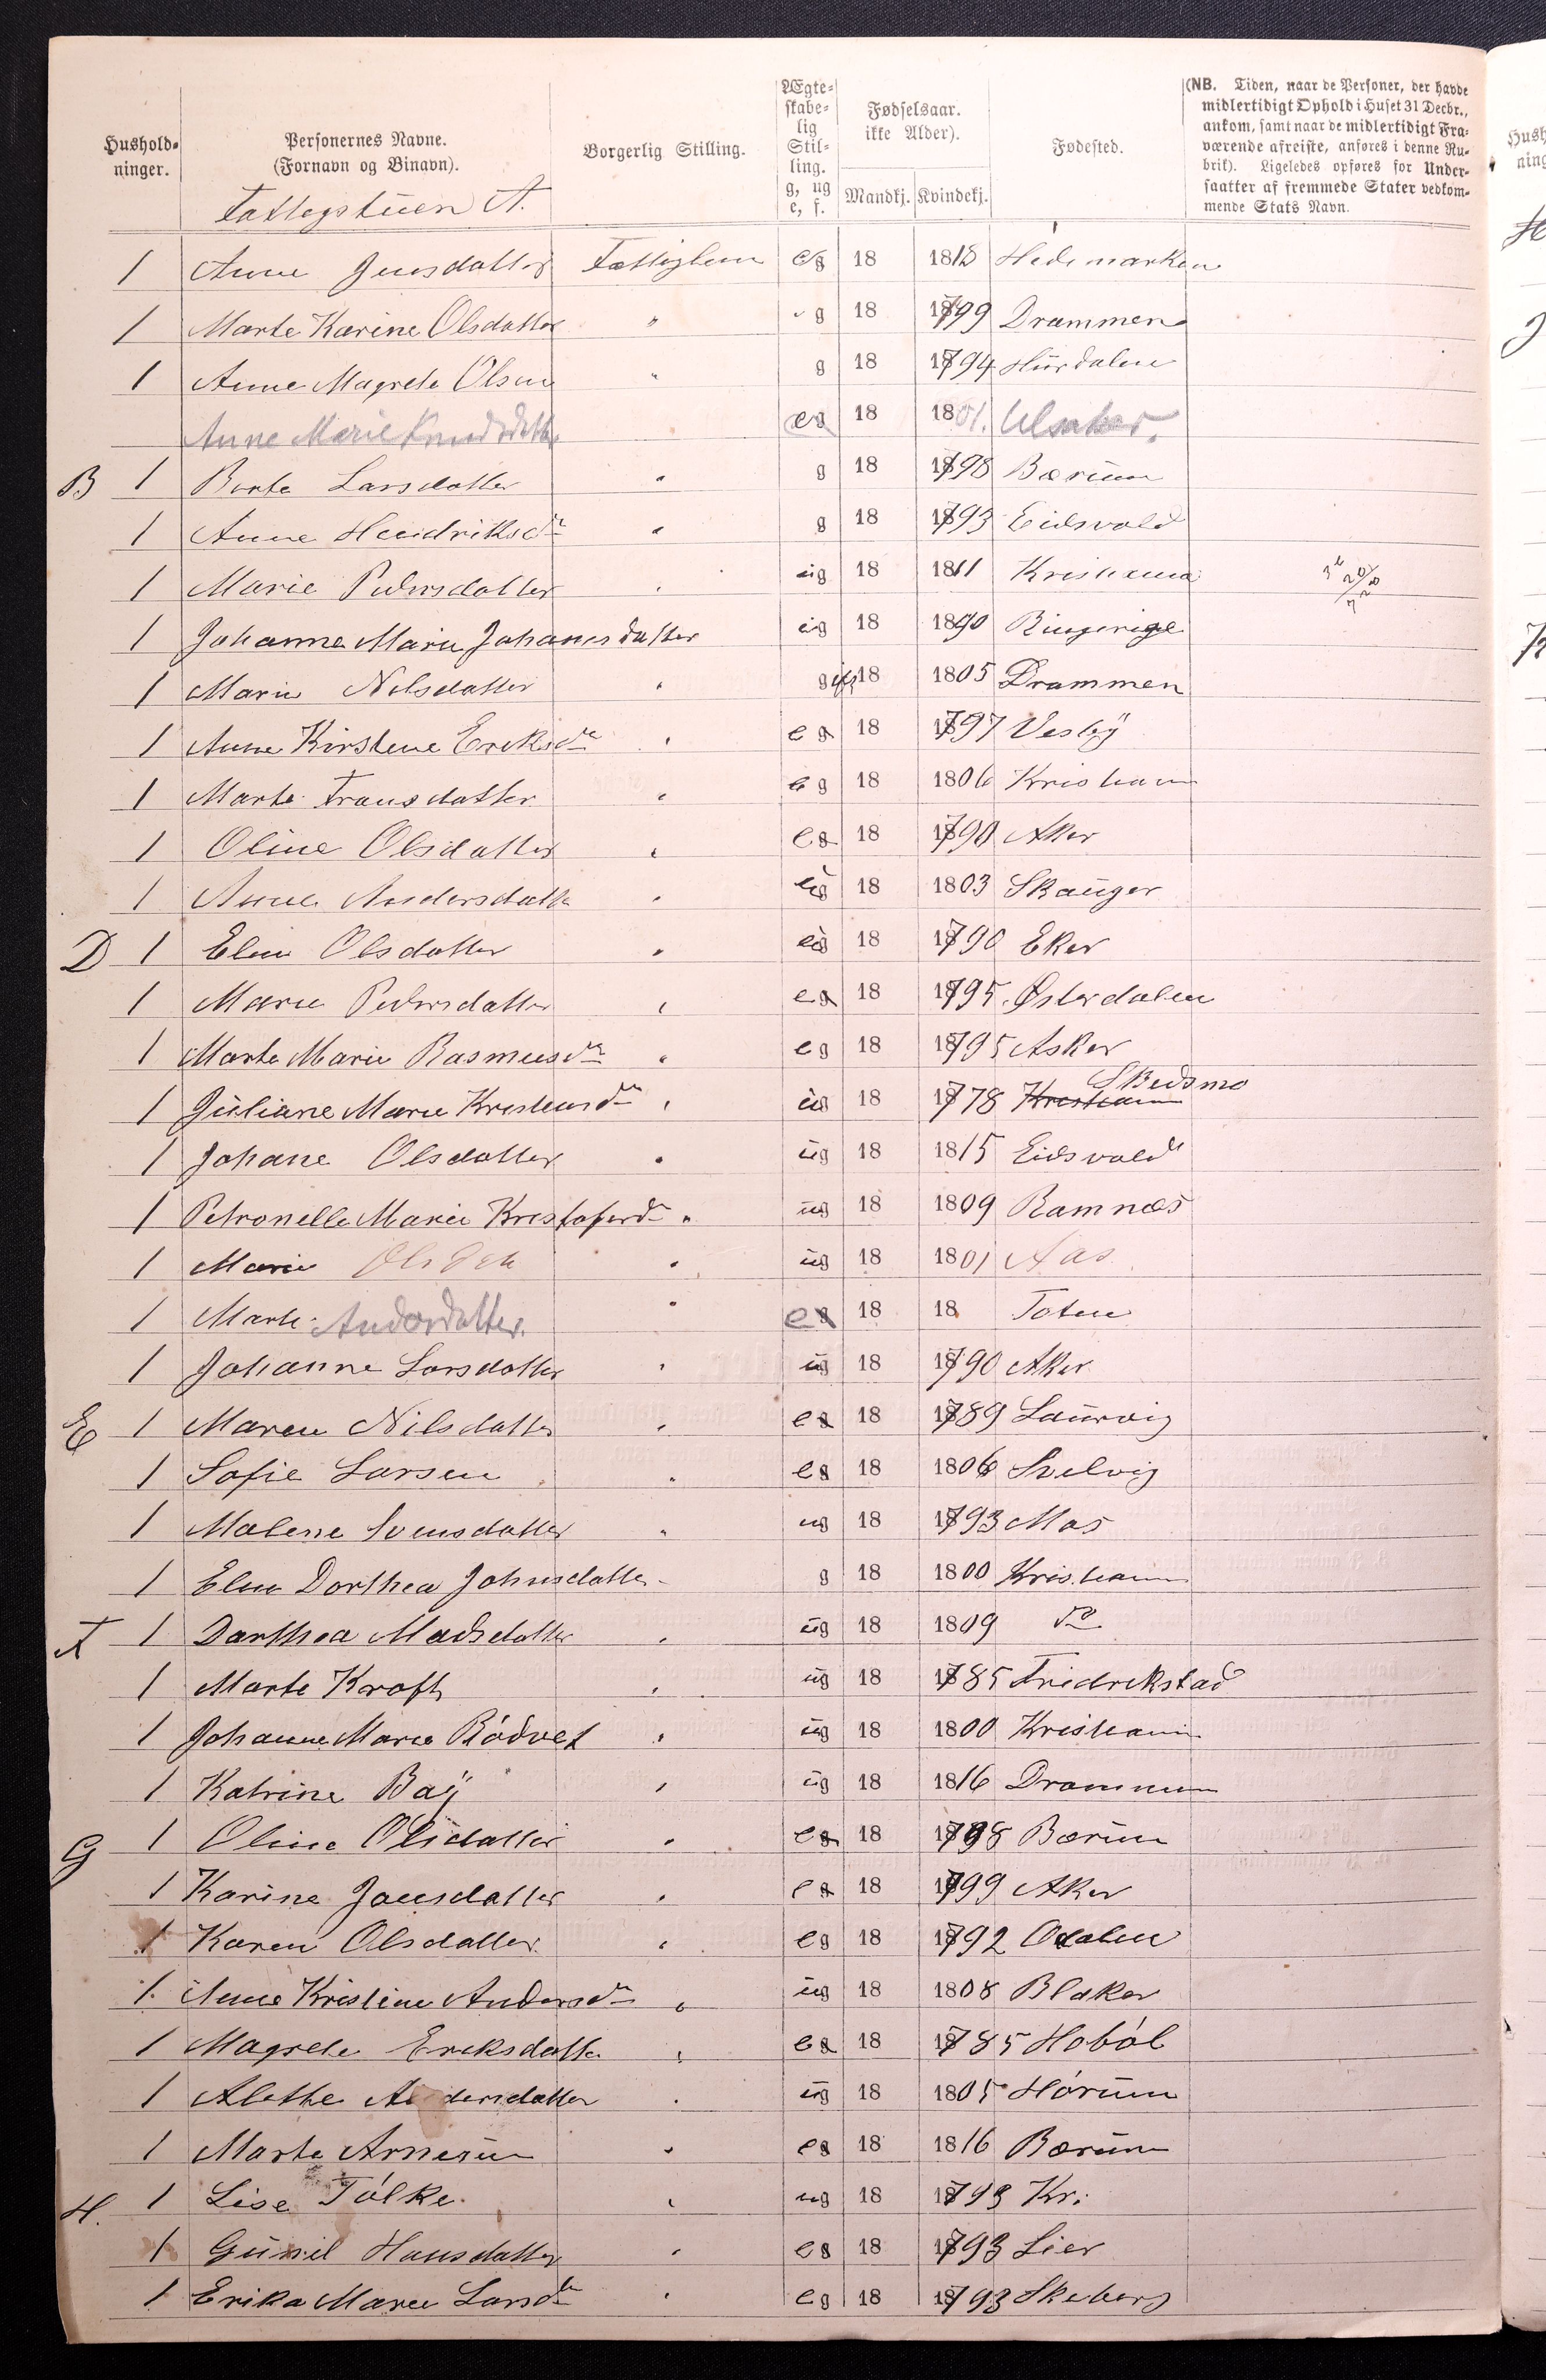 Hushold-
ninger.
Personernes Navne.
(Fornavn og Binavn).
Borgerlig Stilling.
Ægte-
skabe-
lig
Stil-
ling.
g, ug
e, f.
Fødselsaar.
ikke Alder).
Mandkj. Kvindekj.
Fødested.
(NB. Tiden, naar de Personer, der havde
midlertidigt Ophold i Huset 31 Decbr.,
ankom, samt naar de midlertidigt Fra-
værende afreiste, anføres i denne Ru-
brik). Ligeledes opføres for Under-
saatter af fremmede Stater vedkom-
mende Stats Navn.
Fattigstuen A.
1 Anne Jensdatter Fattiglem e 18 1818 Hedemarken
1 Marte Karine Olsdatter " g 18 1799 Drammen
1 Anne Magrete Olsen " g 18 1794 Hurdalen
Anne Marie Knudsdatter e 18 1801.
B 1 Berte Larsdatter " g 18 1798 Bærum
1 Anne Hendriksdr " g 18 1793 Eidsvold
1 Marie Pedersdatter " ug 18 1811 Kristiania
1 Johanne Marie Johanesdatter ug 18 1790 Ringerige
1 Marie Nilsdatter " gift 18 1805 Drammen
1 Anne Kirstene Ereksdr " e 18 1797 Vestby
1 Marte Fransdatter " e 18 1806 Kristiania
1 Oline Olsdatter " e 18 1790 Aker
1 Anne Andersdatter " ug 18 1803 Skauger
D 1 Elen Olsdatter " ug 18 1790 Eker
1 Marie Pedersdatter " e 18 1795 Østerdalen
1 Marte Marie Rasmusdr " e 18 1795 Asker
1 Juliane Marie Kristensdr " ug 18 1778 Kristiania Skedsmo
1 Johane Olsdatter " ug 18 1815 Eidsvold
1 Petronelle Marie Kristoferdr " ug 18 1809 Ramnæs
1 Marie Olsdtr " ug 18 1801 Aas
1 Marte Andersdatter. " e 18 18 Toten
1 Johanne Larsdatter " ug 18 1790 Aker
E 1 Maren Nilsdatter " e 18 1789 Laurvig
1 Sofie Larsen " e 18 1806 Svelvig
1 Malene Svensdatter " ug 18 1793 Mos
1 Elen Dorthea Johnsdatter g 18 1800 Kristiania
F 1 Dorthea Madsdatter " ug 18 1809 do
1 Marte Kraft " ug 18 1785 Fridrekstad
1 Johanne Marie Rödvet " ug 18 1800 Kristiania
1 Katrine Bay " ug 18 1816 Drammen
G 1 Oline Olsdatter " e 18 1798 Bærum
1 Karine Jensdatter " e 18 1799 Aker
1 Karen Olsdatter " eg 18 1792 Odalen
1 Anne Kristine Andersdr " ug 18 1808 Blaker
1 Magrete Ereksdatter " e 18 1785 Hoböl
1 Alethe Andersdatter " ug 18 1805 Hörum
1 Marte Arnesen " e 18 1816 Bærum
H. 1 Lise Tölke " ug 18 1793 Kr:
1 Gunil Hansdatter " e 18 1793 Lier
1 Erika Marie Larsdr " eg 18 1793 Skeberg